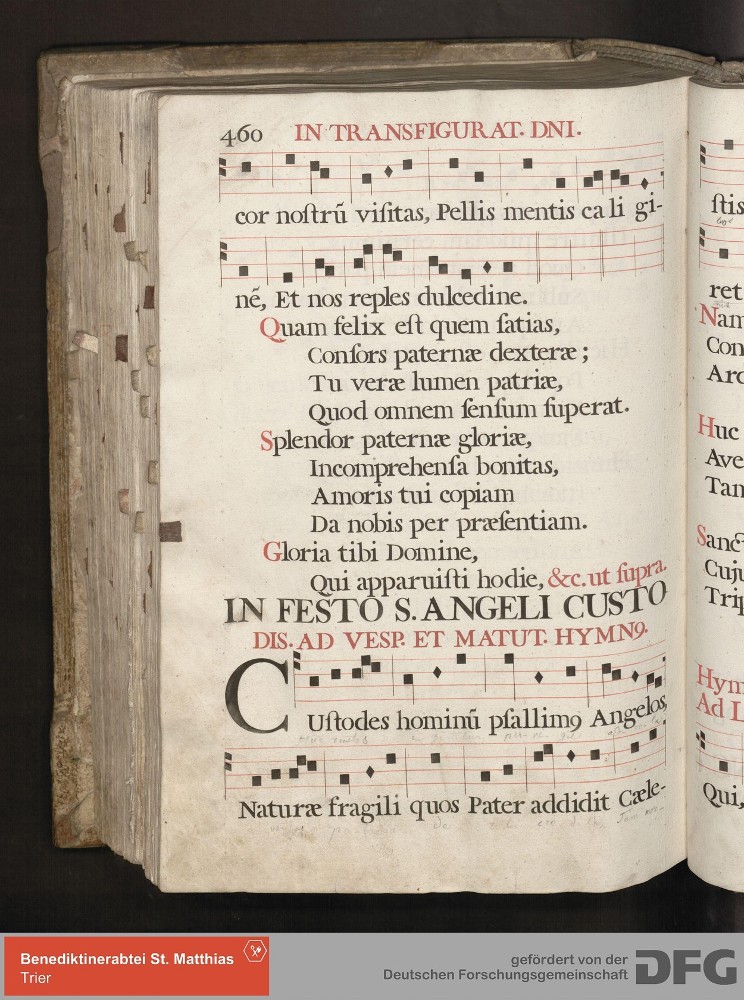 460 IN TRANSFIGURAT. DNI.
cor noſtrũ viſitas, Pellis mentis ca li gi-
nẽ, Et nos reples dulcedine.
Quam felix eſt quem ſatias,
Conſors paternæ dexteræ ;
Tu veræ lumen patriæ,
Quod omnem ſenſum ſuperat.
Splendor paternæ gloriæ,
Incomprehenſa bonitas,
Amoris tui copiam
Da nobis per præſentiam.
Gloria tibi Domine,
Qui apparuiſti hodie, &c. ut ſupra.
IN FESTO S. ANGELI CUSTO
DIS. AD VESP. ET MATUT. HYMN9.
CUſtodes hominũ pſallim9 Angelos,
Naturæ fragili quos Pater addidit Cæle-
ſtis
ret
Nam
Con
Arc
Huc
Ave
Tan
Sanct
Cuju
Trip
Hym
Ad L
Qui,
Benediktinerabtei St. Matthias
Trier
gefördert von der
Deutschen Forschungsgemeinschaft
DFG